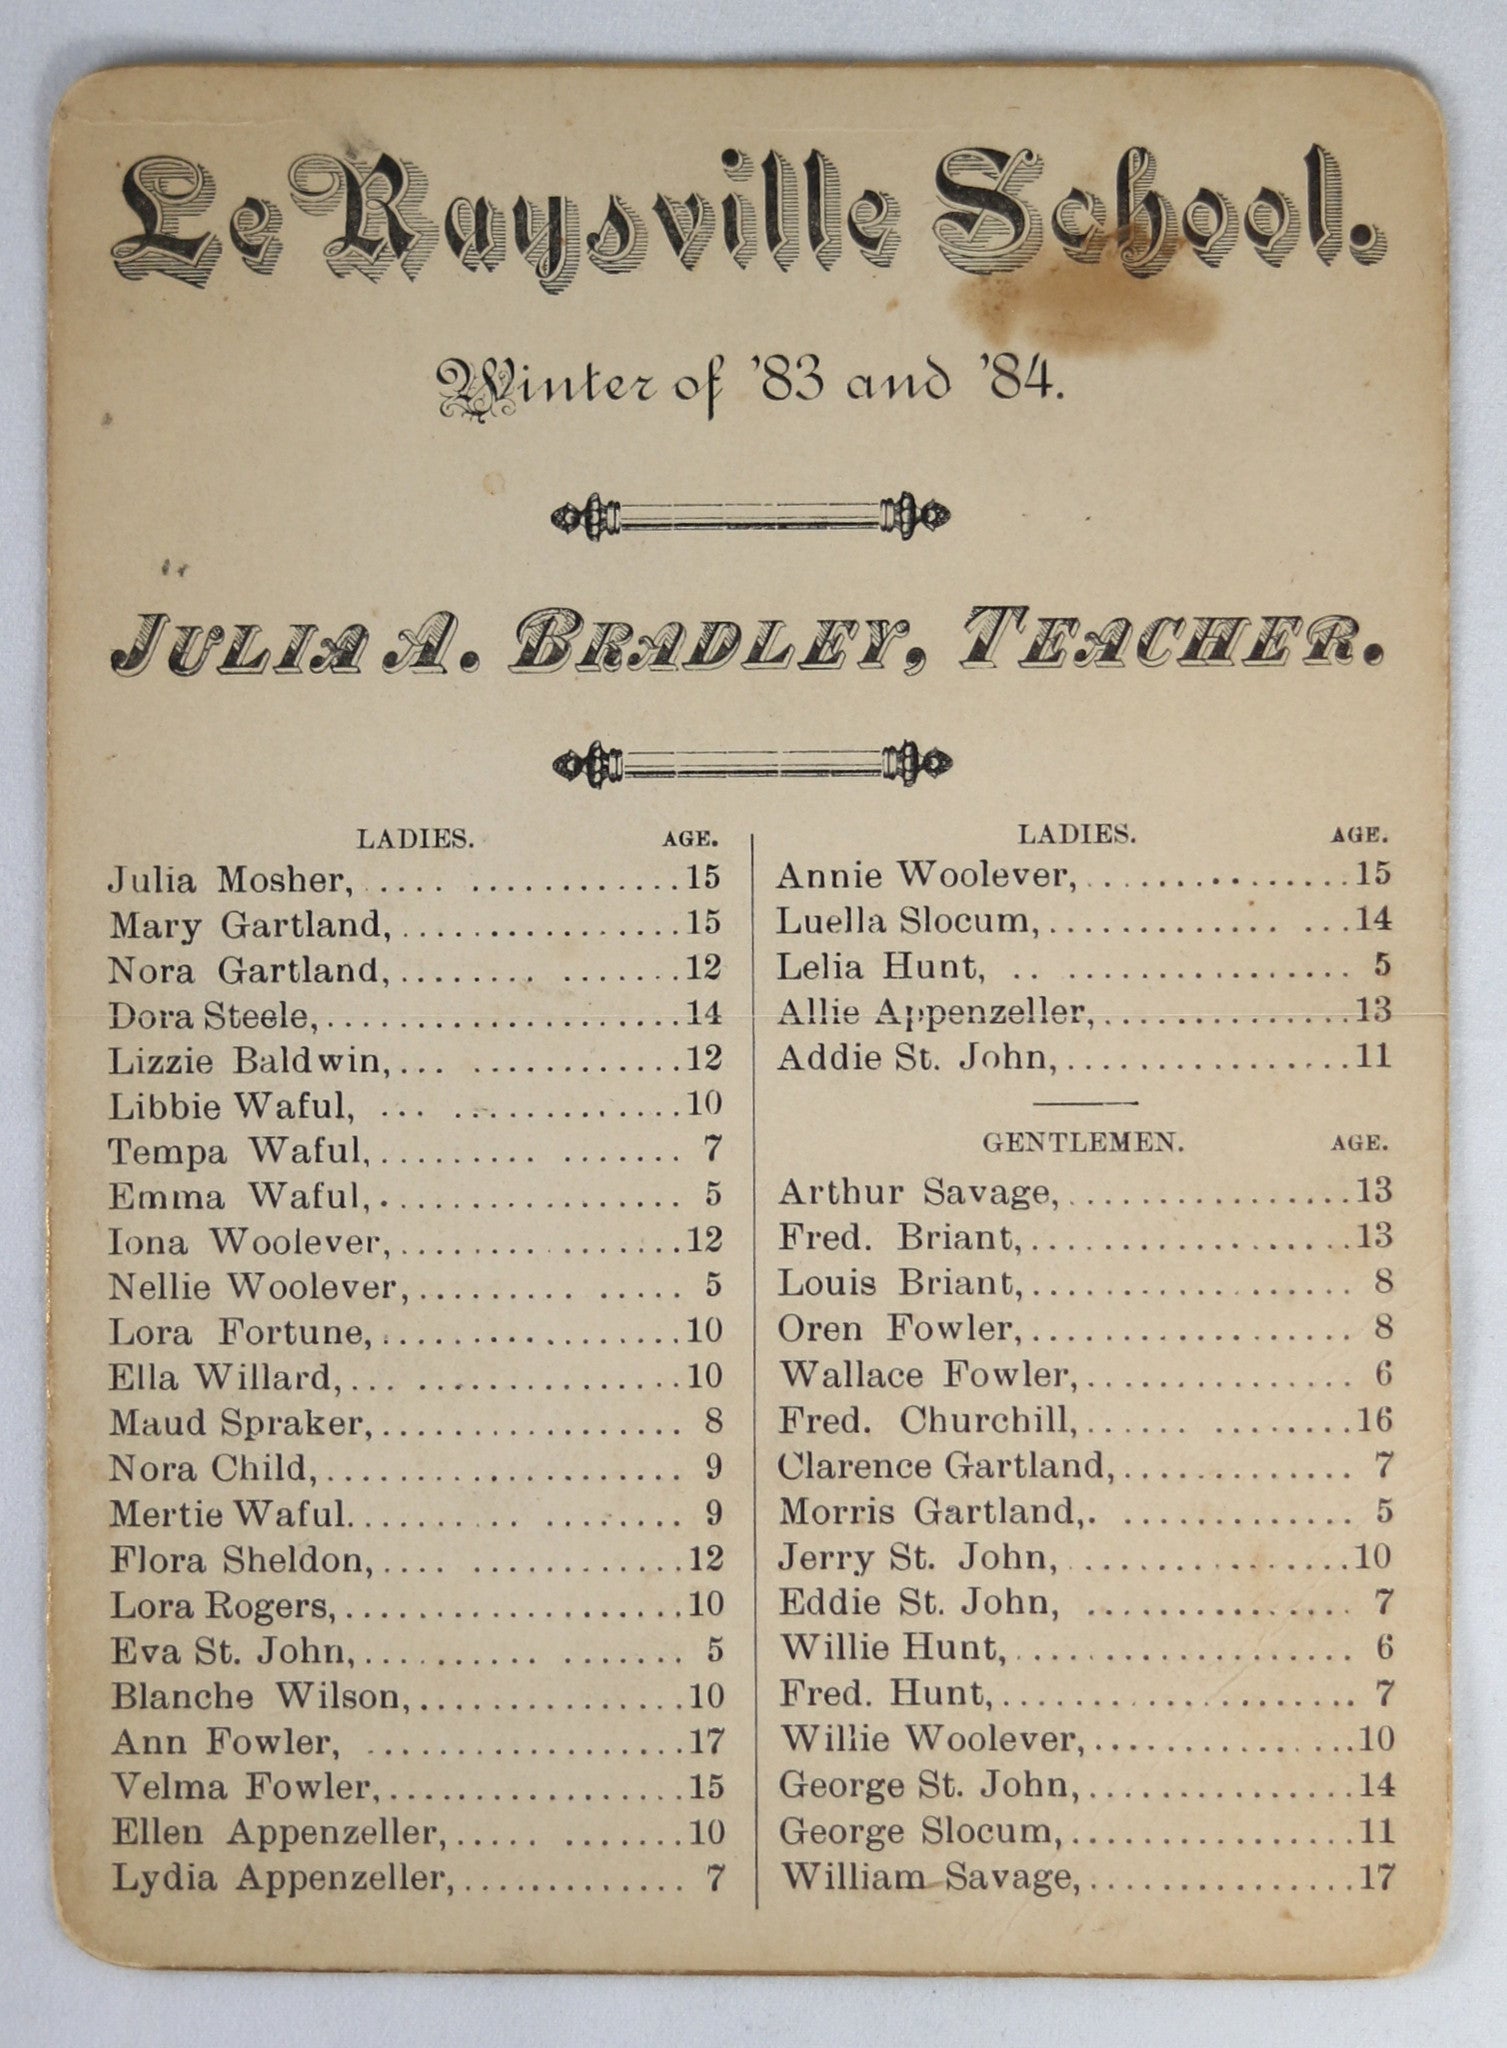 Le Raysville School.
Winter of '83 and '84.
JULIA A. BRADLEY, TEACHER.
LADIES. AGE.
Julia Mosher, .... ............15
Mary Gartland,................15
Nora Gartland,......... .......12
Dora Steele,....................14
Lizzie Baldwin,... ............12
Libbie Waful, ... .............10
Tempa Waful,.......... ....... 7
Emma Waful,................. 5
Iona Woolever,................12
Nellie Woolever,......... ..... 5
Lora Fortune,.................10
Ella Willard,... ...............10
Maud Spraker,................. 8
Nora Child,.................... 9
Mertie Waful.......... ........ 9
Flora Sheldon,.... ............12
Lora Rogers,...................10
Eva St. John,.......... ....... 5
Blanche Wilson,...............10
Ann Fowler, ..................17
Velma Fowler,.................15
Ellen Appenzeller,..... .......10
Lydia Appenzeller,............. 7
LADIES. AGE.
Annie Woolever,...............15
Luella Slocum,............. ...14
Lelia Hunt, .. ................ 5
Allie Appenzeller,..............13
Addie St. John,................11
GENTLEMEN. AGE.
Arthur Savage,................13
Fred. Briant,..................13
Louis Briant,.................. 8
Oren Fowler,.................. 8
Wallace Fowler,............... 6
Fred. Churchill,...... ........16
Clarence Gartland,............. 7
Morris Gartland,. ............. 5
Jerry St. John,................10
Eddie St. John, ............... 7
Willie Hunt,................... 6
Fred. Hunt,.................... 7
Willie Woolever,...............10
George St. John,...............14
George Slocum,................11
William Savage,...............17